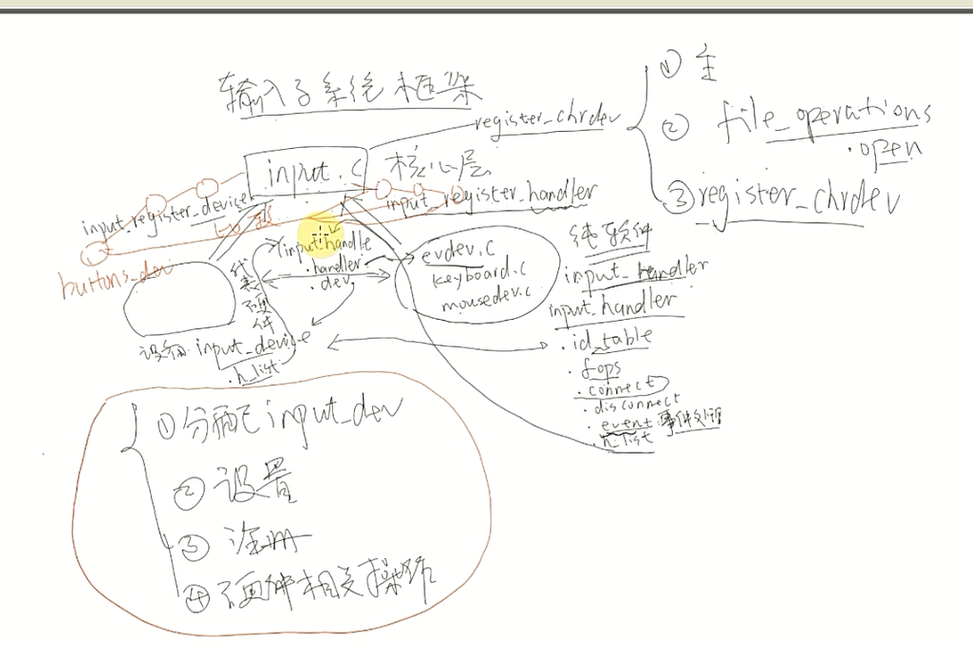 输入子系统框架
register_chrdev
① 主
② file_operations
.open
③ register_chrdev
input.c 核心层
input_register_device
input_register_handler
buttons_dev
input_handle
.handler
.dev
evdev.c
keyboard.c
mousedev.c
代表硬件
纯软件
input_handler
input_handler
.id_table
.fops
.connect
.disconnect
.event 事件处理
.h_list
input_device
.h_list
①分配 input_dev
②设置
③注册
④硬件相关操作